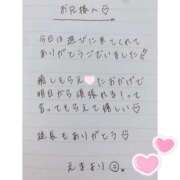 お兄様へ♡
今日は遊びに来てくれて
ありがとうございました
癒してもらえたおかげで
明日から頑張れます！って
言ってもらえて嬉しい♡
延長もありがとう♡
えまより